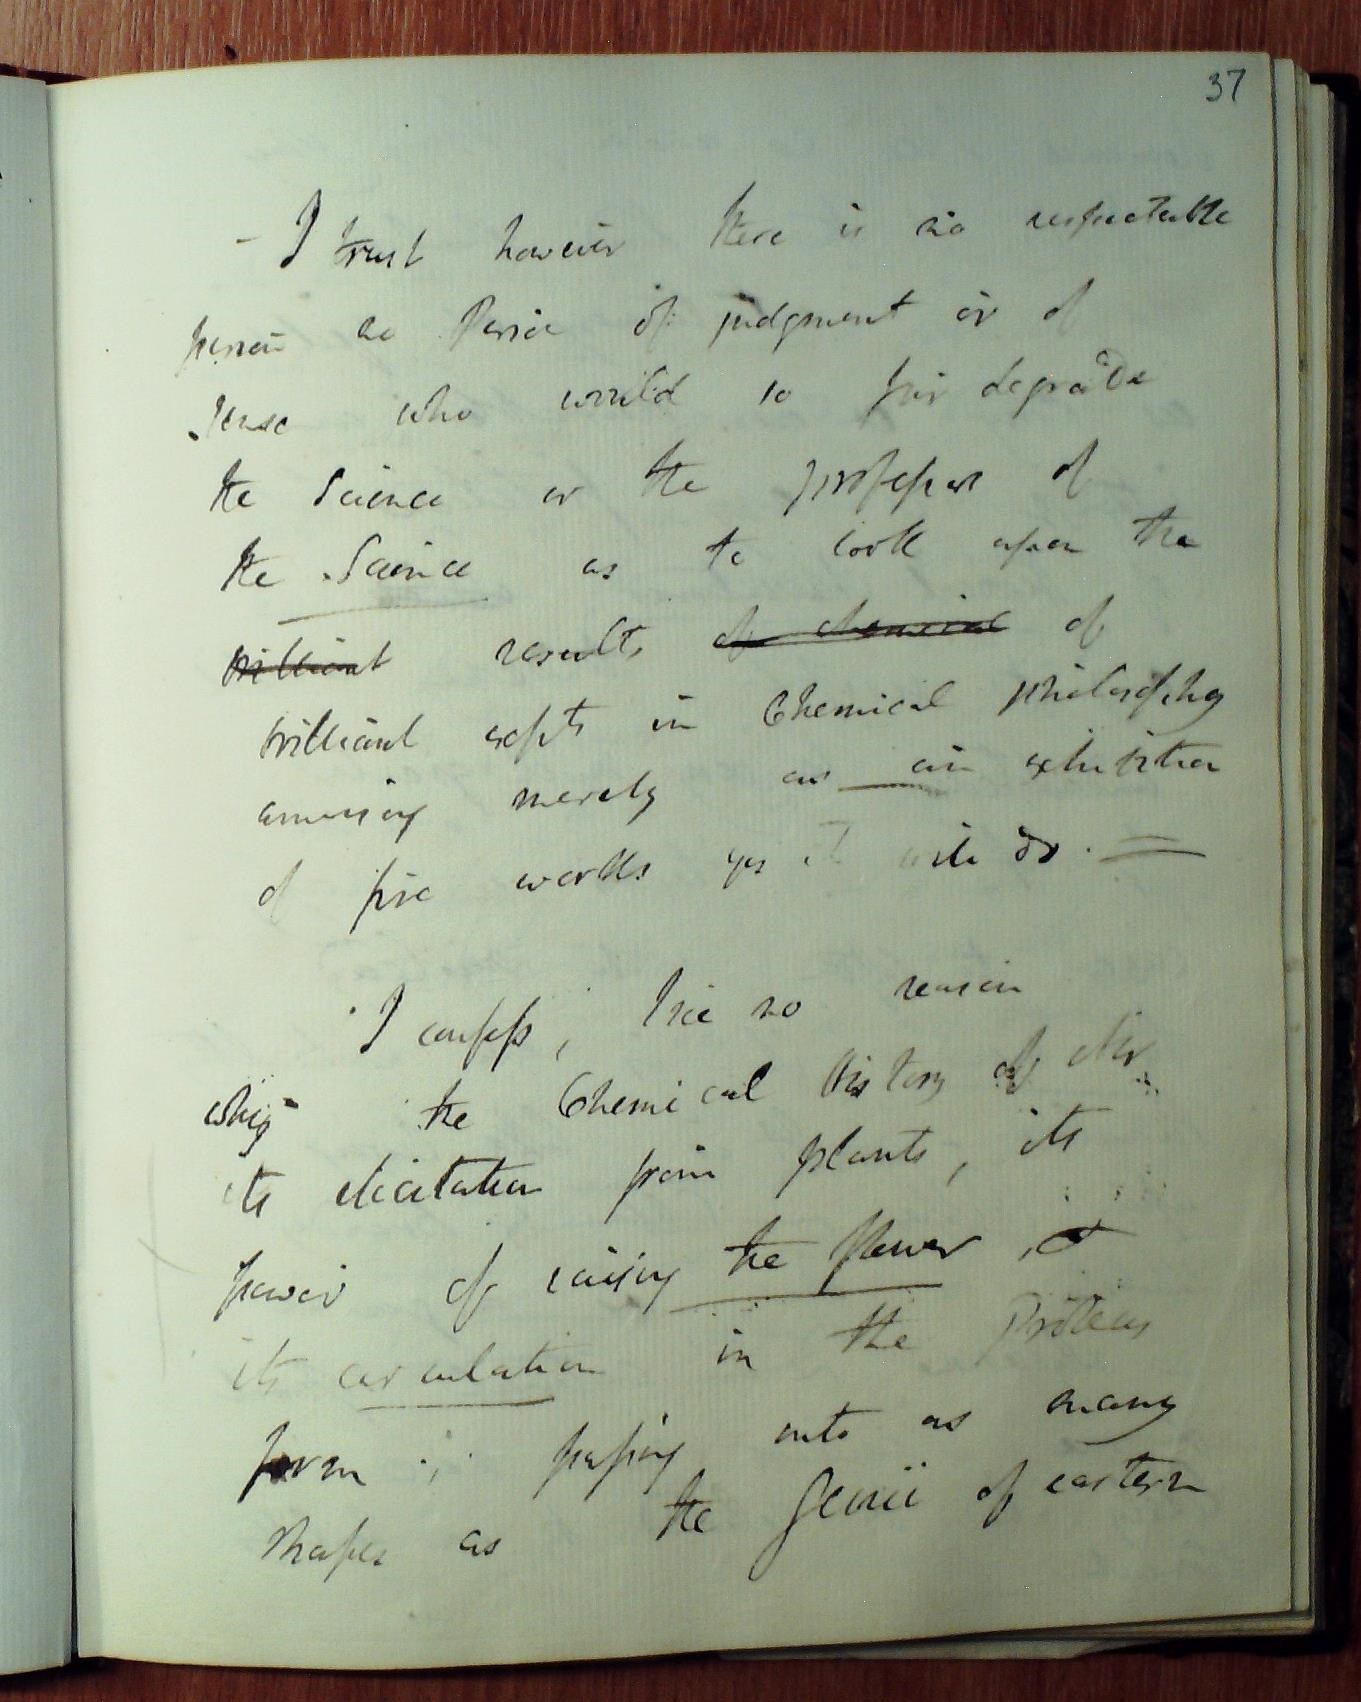 37
- I trust however there is no respectable
person no Person of judgment or of
sense who would so far degrade
the Science or the professors of
the Science as to look upon the
brilliant results of chemical of
brilliant in Chemical philosophy
amusing merely as an exhibition
of fire works
I confess, I see no reason
why the Chemical History of Air
its elicitation from plants, its
power of raising the flower
its circulation in the Proteus
form ; passing into as many
shapes as the Genii of eastern